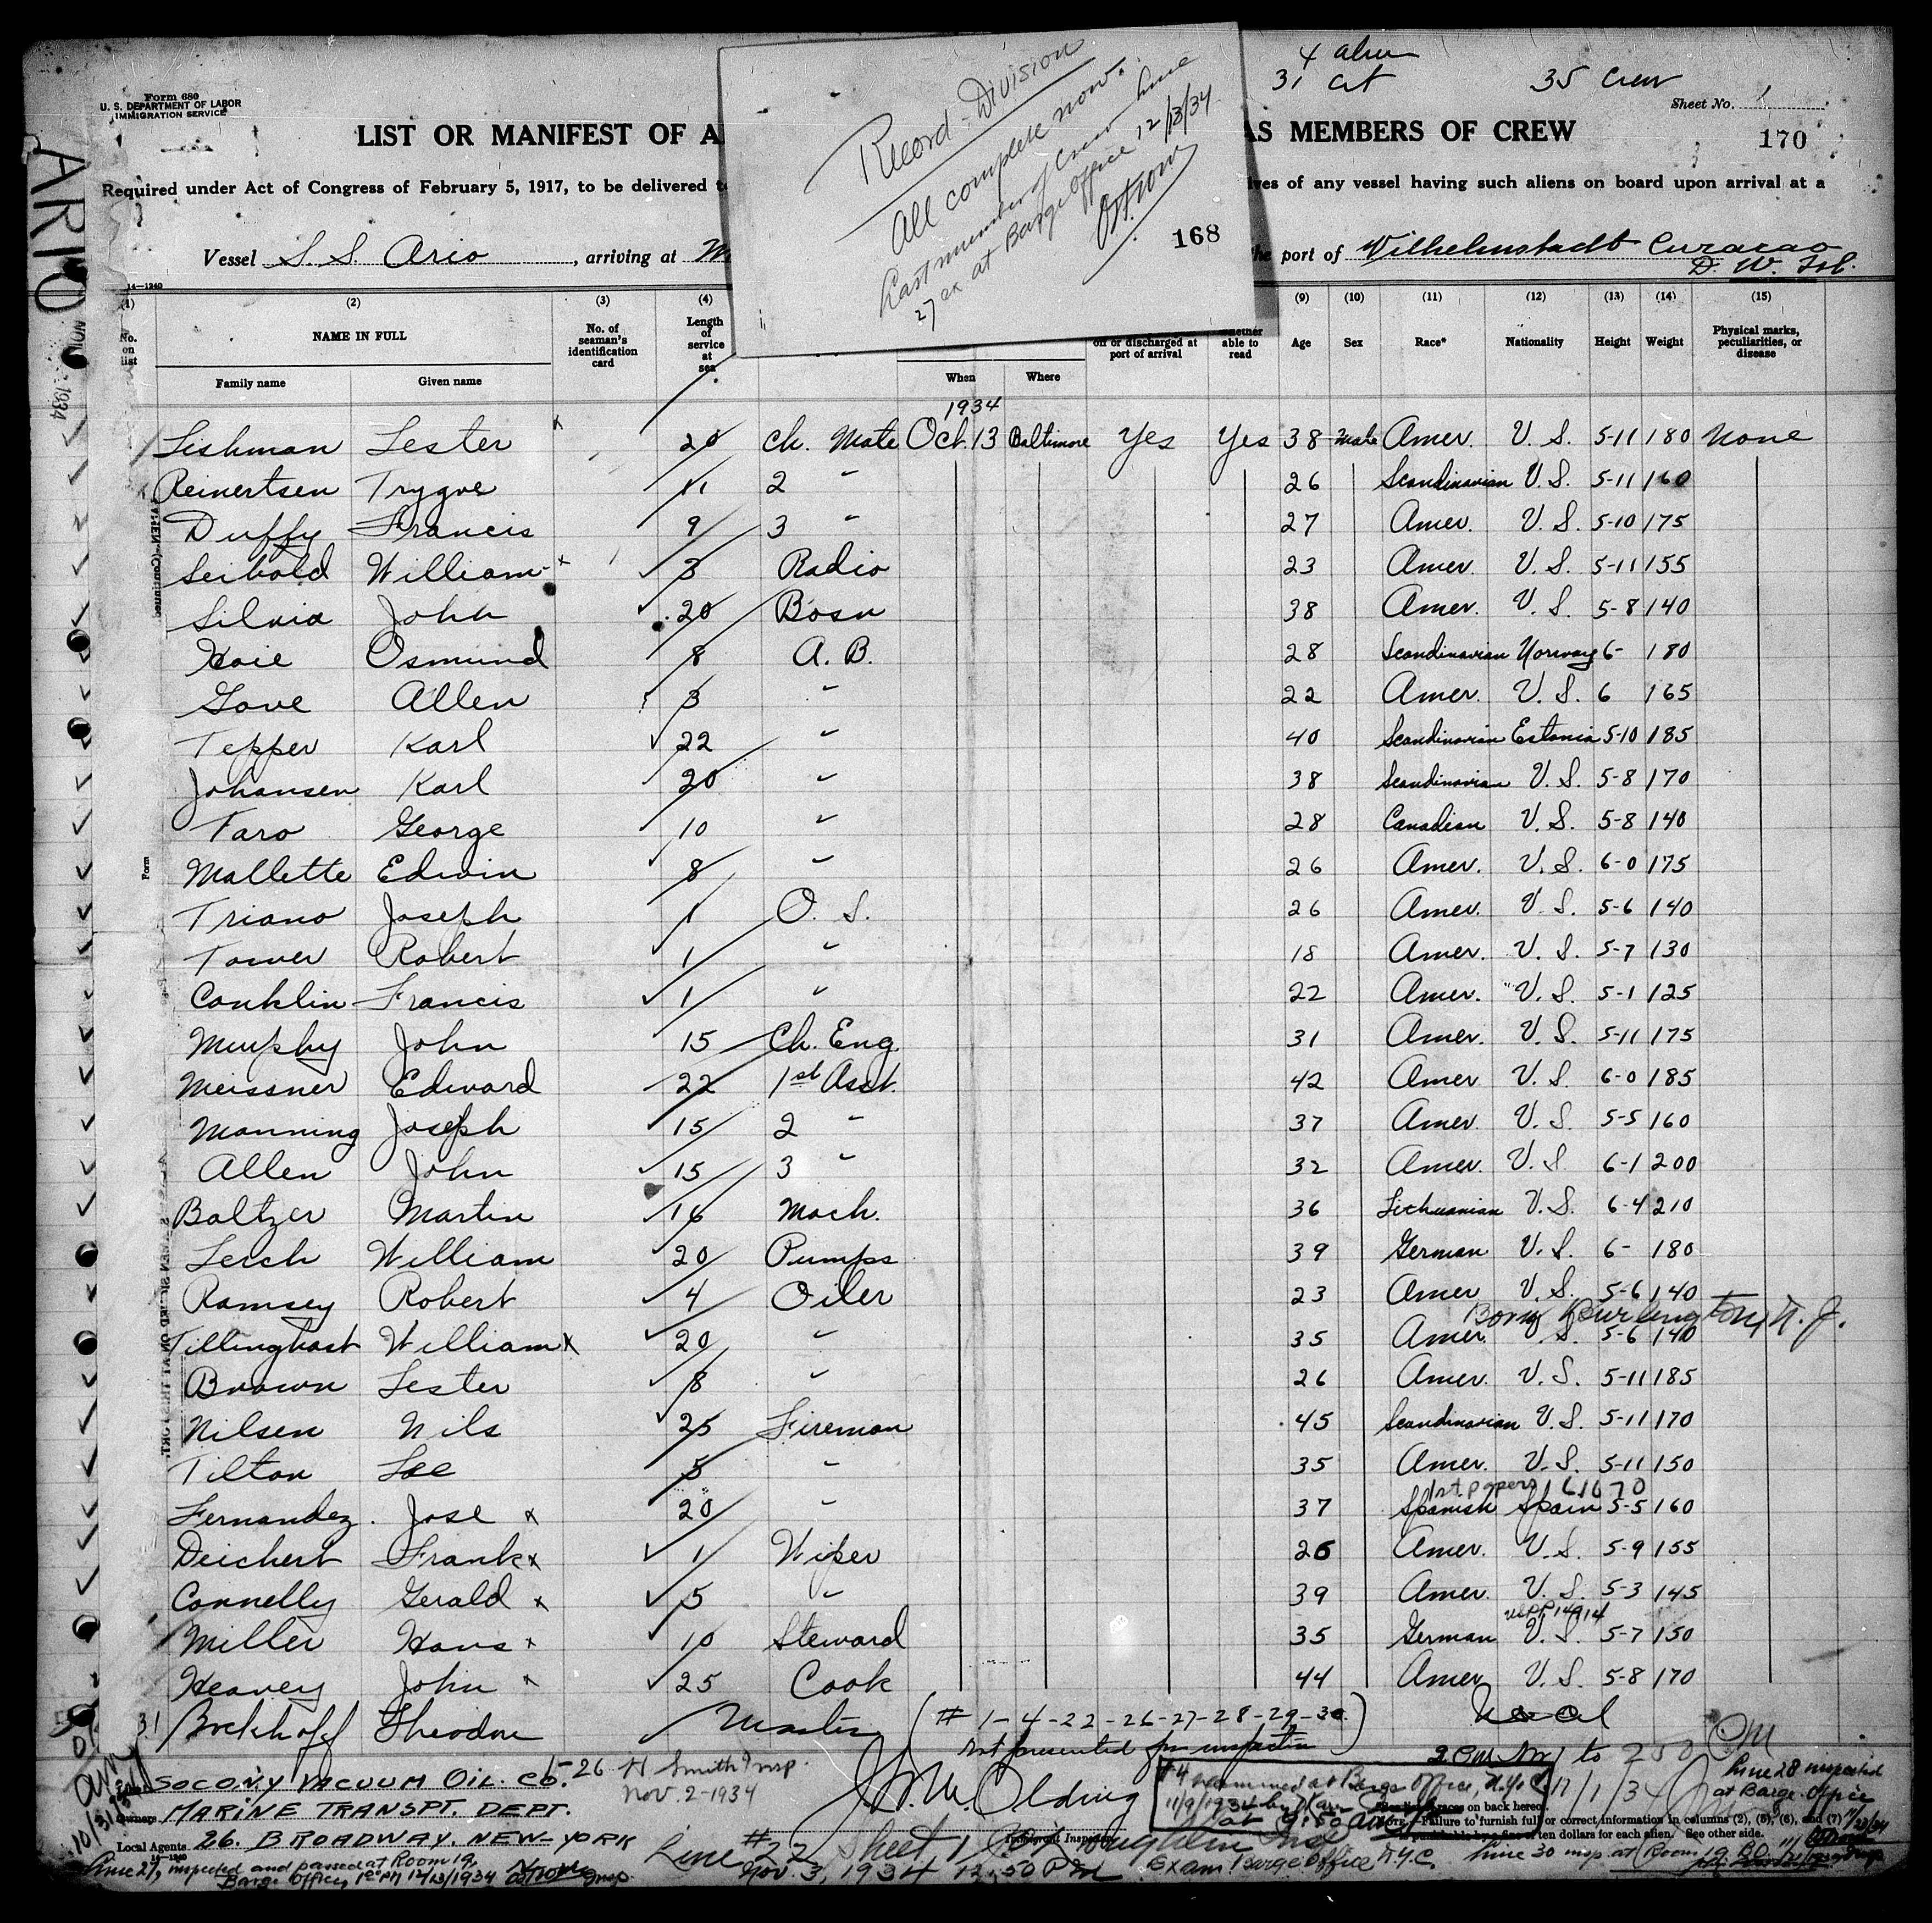 4 alien
31 cit
35 Crew
Form 680
U. S. DEPARTMENT OF LABOR
IMMIGRATION SERVICE
Sheet No. 1
LIST OR MANIFEST OF A
AS MEMBERS OF CREW
170
Record-Division
All complete now.
Last member of Crew line
27 ex at Barge Office 12/13/34
168
Required under Act of Congress of February 5, 1917, to be delivered to
ives of any vessel having such aliens on board upon arrival at a
Vessel S. S. Ario, arriving at
he port of Wilhelmstadt Curacao
ARIO
14-1240
(1) (2) (3) (4) (9) (10) (11) (12) (13) (14) (15)
No. on list
NAME IN FULL
Family name Given name
No. of seaman's identification card
Length of service at sea
When Where
off or discharged at port of arrival
whether able to read
Age Sex Race* Nationality Height Weight
Physical marks, peculiarities, or disease
1934
Lishman Lester 20 Ch. Mate Oct. 13 Baltimore Yes Yes 38 Male Amer. U. S. 5-11 180 None
Reinertsen Trygve 11 2 " 26 Scandinavian U. S. 5-11 160
Duffy Francis 9 3 " 27 Amer. U. S. 5-10 175
Seibold William x 3 Radio 23 Amer. U. S. 5-11 155
Silvia John 20 Bosn 38 Amer. U. S. 5-8 140
Hoie Osmund 8 A. B. 28 Scandinavian Norway 6- 180
Gove Allen 3 " 22 Amer. U. S. 6 165
Tepper Karl 22 " 40 Scandinavian Estonia 5-10 185
Johansen Karl 20 " 38 Scandinavian U. S. 5-8 170
Faro George 10 " 28 Canadian U. S. 5-8 140
Mallette Edwin 8 " 26 Amer. U. S. 6-0 175
Triano Joseph 1 O. S. 26 Amer. U. S. 5-6 140
Tower Robert 1 " 18 Amer. U. S. 5-7 130
Conklin Francis 1 " 22 Amer. U. S. 5-1 125
Murphy John 15 Ch. Eng. 31 Amer. U. S. 5-11 175
Meissner Edward 22 1st Asst. 42 Amer U. S. 6-0 185
Manning Joseph 15 2 " 37 Amer. U. S. 5-5 160
Allen John 15 3 " 32 Amer. U. S. 6-1 200
Baltzer Martin 16 Mach. 36 Lithuanian U. S. 6-4 210
Lerch William 20 Pumps 39 German U. S. 6- 180
Ramsey Robert 4 Oiler 23 Amer U. S. 5-6 140
Born Burlington, N. J.
Tillinghast William x 20 " 35 Amer. U. S. 5-6 140
Brown Lester 8 " 26 Amer. U. S. 5-11 185
Nilsen Nils 25 Fireman 45 Scandinavian U. S. 5-11 170
Tilton Lee 5 " 35 Amer. U. S. 5-11 150
1st papers 61670
Fernandez Jose x 20 " 37 Spanish Spain 5-5 160
Deichert Frank x 1 Wiper 26 Amer. U. S. 5-9 155
Connelly Gerald x 5 " 39 Amer. U. S. 5-3 145
Miller Hans x 10 Steward 35 German U. S. 5-7 150
Heavey John x 25 Cook 44 Amer U. S. 5-8 170
31 Bockhoff Theodore Master (# 1-4-22-26-27-28-29-30)
Not presented for inspection
SOCONY VACUUM OIL. CO.
Owners MARINE TRANSPT. DEPT.
Local Agents 26. BROADWAY. NEW-YORK
H Smith Insp.
Nov. 2-1934
J. W. M. Olding
Immigrant Inspector
#4 examined at Barge Office, N.Y.C.
11/9/1934
Line 28 inspected at Barge Office
on back hereof.
Failure to furnish full or correct information in columns (2), (5), (6), and (7)
ten dollars for each alien. See other side.
Line #22 Sheet 1
Nov. 3, 1934 12.50 PM
Exam Barge Office N.Y.C.
Line 30 insp at Room 19
Line 27, inspected and passed at Room 19,
Barge Office, 1 PM 12/13/1934